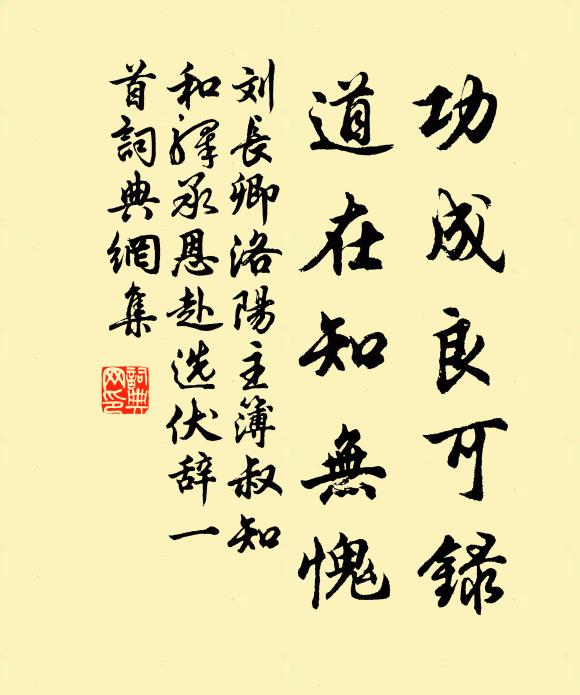 功成良可録
道在知無愧
刘長卿洛陽主簿叔知
和驛承恩赴选伏辞一
首詞典網集
詞典網印